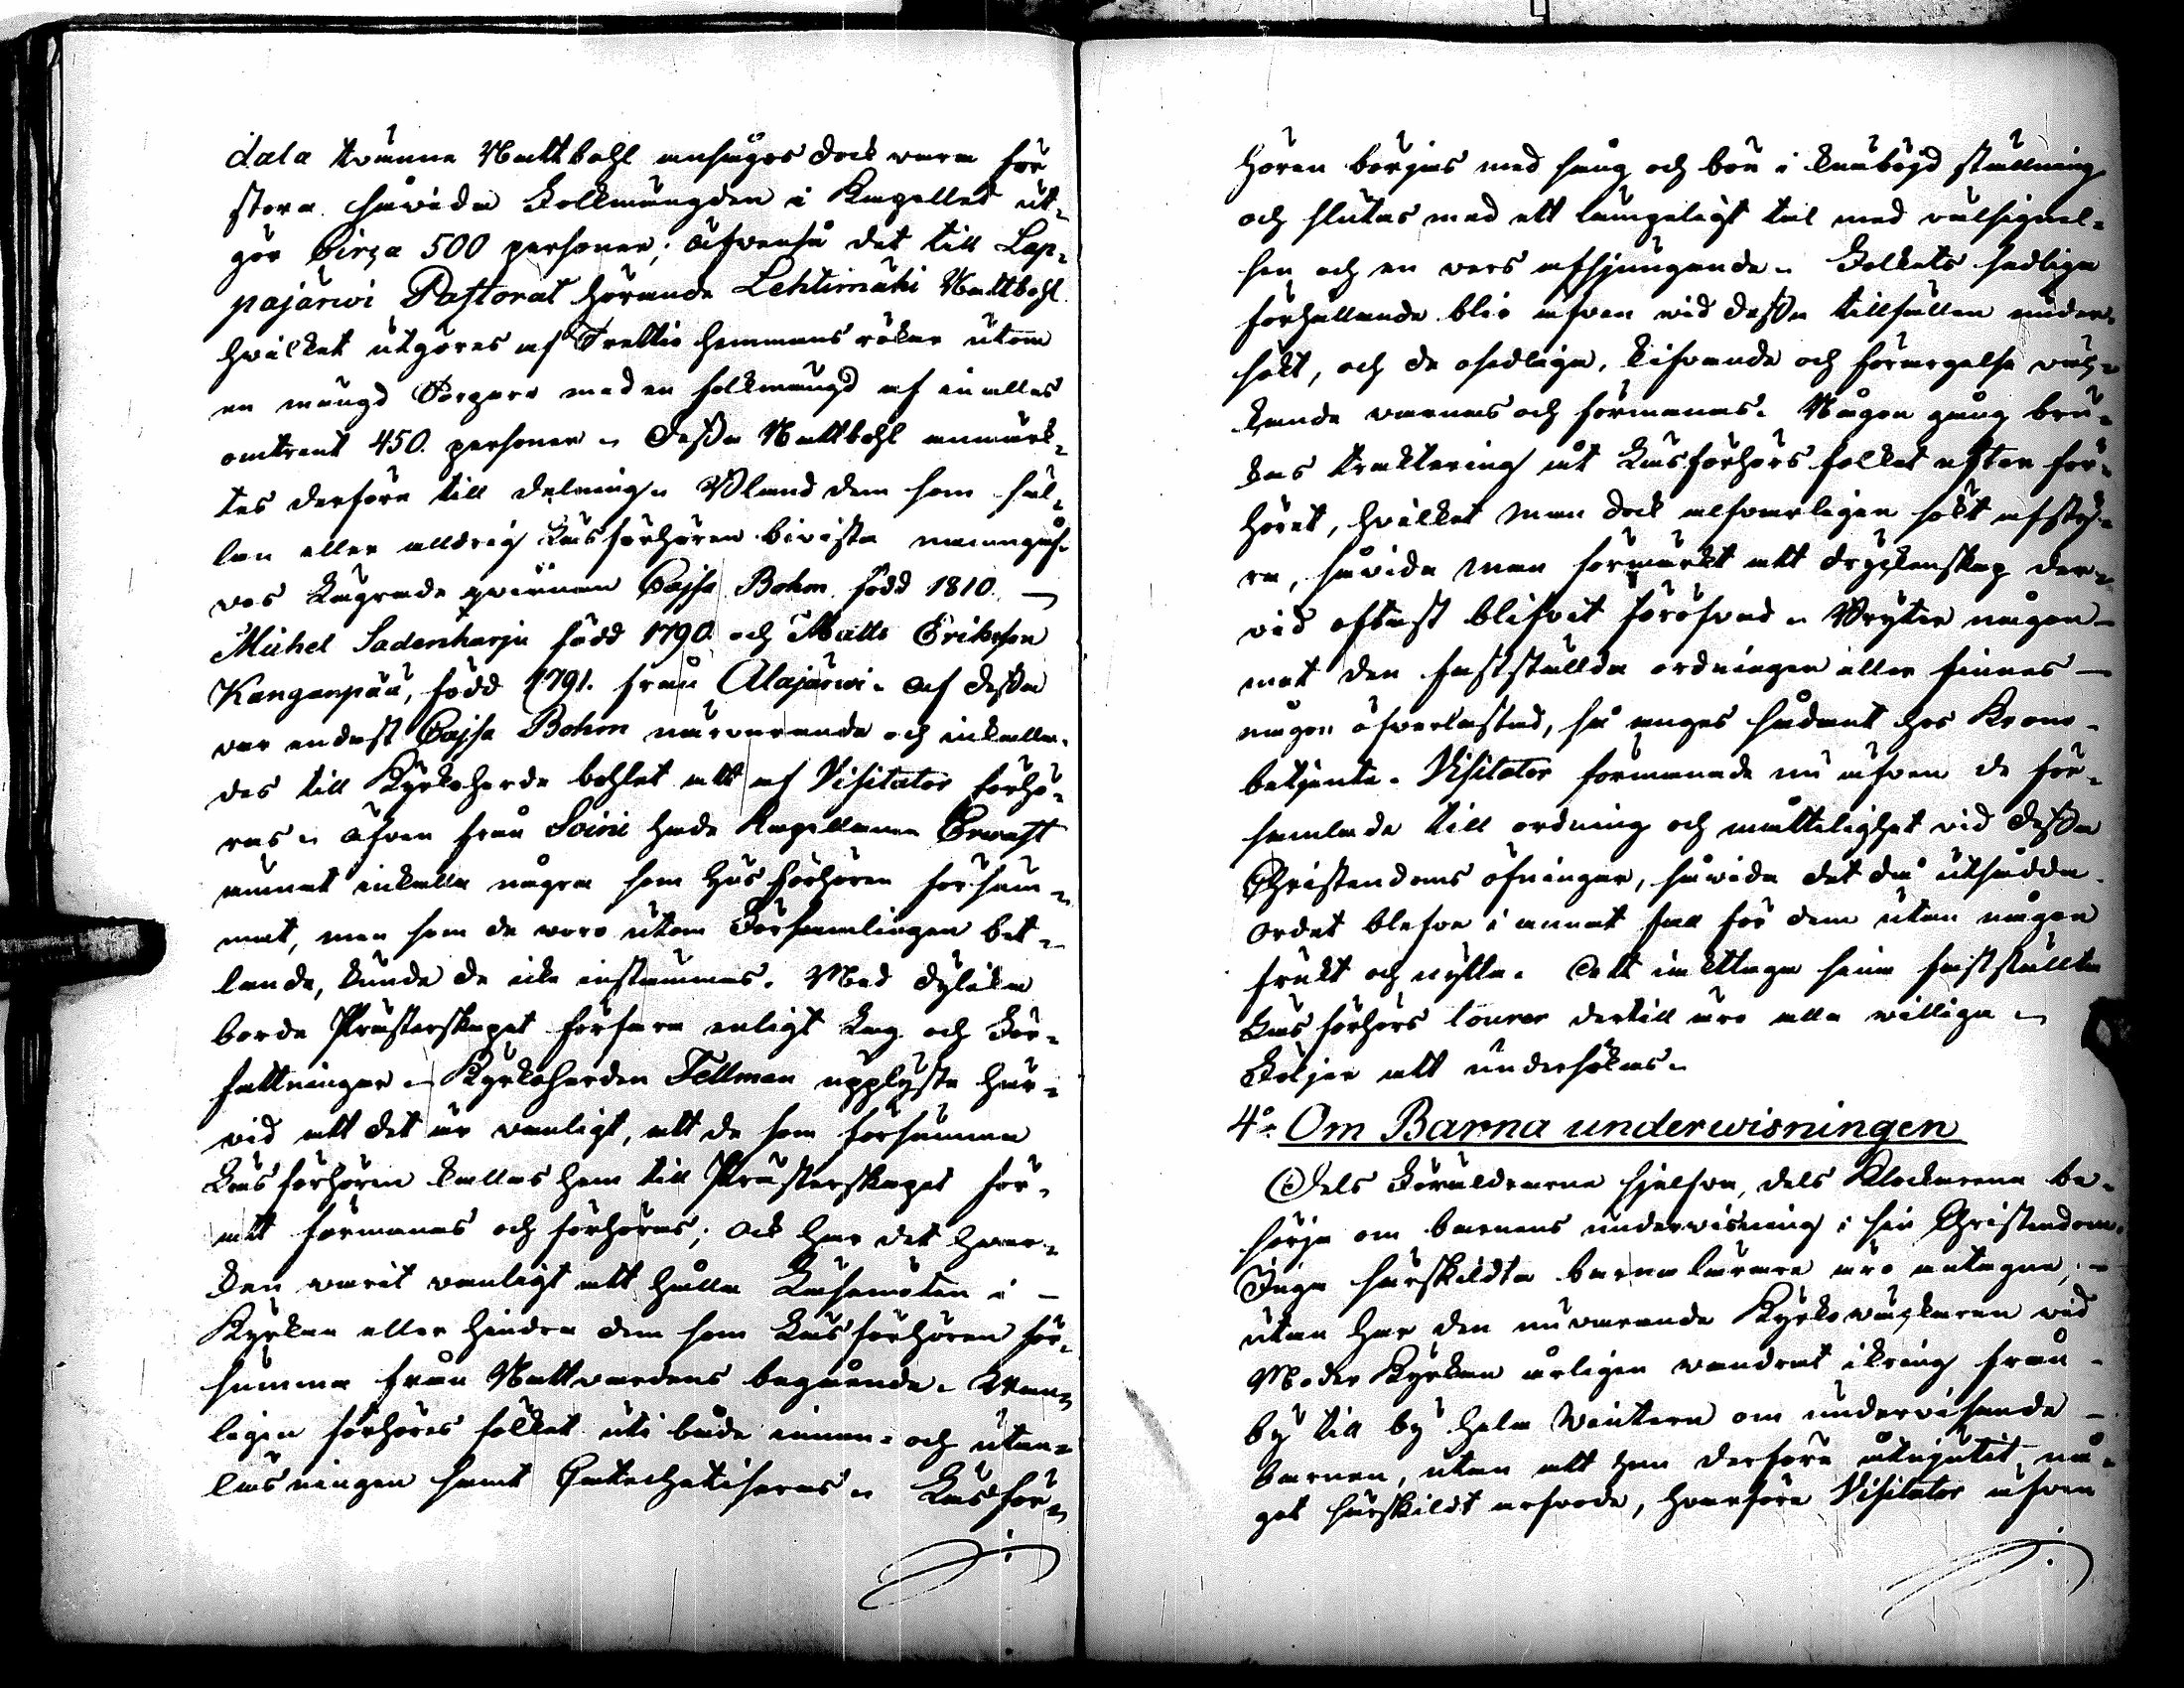 dala tvänne Nattbohl ansågos dock vara för
stora såvida Folkmängden i Kapellet ut=
gör Cirça 500 personer; äfvenså det till Lap=
pajärwi Pastorat hörande Lehtimäki Nattbohl
hvilket utgöres af Trettio hemmans rökar utom
en mängd Torpare med en folkmängd af in alles
omtrent 450. personer. Dessa Nattbohl anmärk=
tes derföre till delning. Bland dem som säl=
lan eller alldrig Läsförhören bivista namngåf=
vos Lägrade qvinnan Cajsa Bohm född 1810. —
Michel Sadenharju född 1790. och Matts Eriksson
Kangaspää, född 1791. från Alajärwi. Af dessa
var endast Cajsa Bohm närvarande och inkalla=
des till Kyrkoherde bohlet att af Visitator förhö=
ras. Äfven från Soini hade Kapellanen Erwast
ämnat inkalla några som Läsförhören försum=
mat, men som de voro utom Församlingen bet=
lande, kunde de icke instämmas. Med dylika
borde Prästerskapet förfara enligt Lag och För=
fattningar. Kyrkoherden Fellman upplyste här=
vid att det är vanligt, att de som försumma
Läsförhören kallas hem till Prästerskapet för
att förmanas och förhöras; Ock har det hvar=
ken varit vanligt att hålla Läsemöten i —
Kyrkan eller hindra dem som Läsförhören för=
summa från Nattvardens begående. Van=
ligen förhöres folket uti både innan= och utan=
läsningen samt Catechetiseras. Läsför=
hören börjas med sång och bön i knäböjd ställning
och slutas med ett lämpeligt tal med välsignel=
sen och en vers afsjungande. Folkets sedliga
förhållande blir äfven vid dessa tillfällen under=
sökt, och de osedliga, kifvande och förargelse väc=
kande varnas och förmanas. Någon gång bru=
kas traktering åt Läsförhörs folket efter för=
höret, hvilket man dock alfvarligen sökt afsty=
ra, såvida man förmärkt att dryckenskap der=
vid oftast blifvit föröfvad. Bryter någon —
mot den fastställda ordningen eller finnes —
någon öfverlastad, så anges sådant hos Krono=
betjente. Visitator förmanade nu äfven de för=
samlade till ordning och måttelighet vid dessa
Christendoms öfningar, såvida det då utsådda
Ordet blefve i annat fall för dem utan någon
frukt och nytta. Att iakttaga sina fastställda
Läsförhörs tourer dertill äro alla willige.
Följer att undersökas.
4:o Om Barna underwisningen
Dels Föräldrarne sjelfva, dels Klockarena be=
sörja om barnens undervisning i sin Christendom.
Inga särskildta barnalärare äro antagne, —
utan har den nuvarande Kyrkoväcktaren vid
Moder Kyrkan årligen vandrat ikring från —
by till by hela Vintern om undervisande —
barnen, utan att han derföre åtnjutit nå=
got särskildt arfvode, hvarföre Visitator äfven